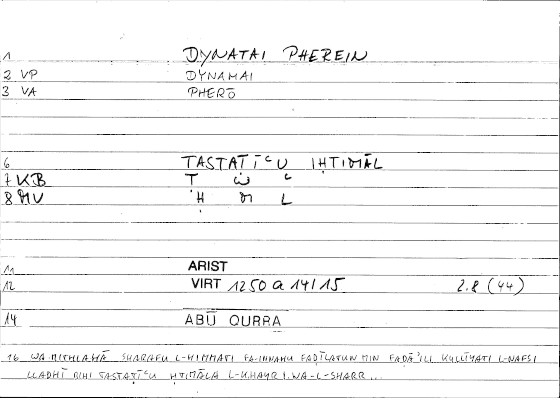 1 DYNATAI PHEREIN
2 VP DYNAMAI
3 VA PHERŌ
6 TASTATĪʿU IḤTIMĀL
7 KB T W ʿ
8 MU Ḥ M L
11 ARIST
12 VIRT 1250 a 14/15 2.8 (44)
14 ABŪ QURRA
16 WA-MITHLAHĀ SHARAFU L-HIMMATI FA-INNAHU FAḌĪLATUN MIN FAḌĀʾILI KULLĪYATI L-NAFSI
LLADHĪ BIHI TASTATĪʿU ḤTIMĀLA L-KHAYRI WA-L-SHARR...